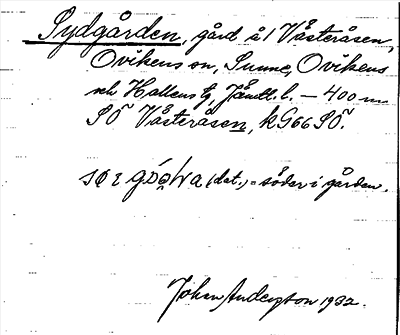 Sydgården, gård å 1 Västeråsen,
Ovikens sn, Sunne, Ovikens
och Hallens tg, Jämtl. l. – 400 m
SÖ Västeråsen, k G66 SÖ.
(dat.) = söder i gården.
Johan Anderzon 1932.